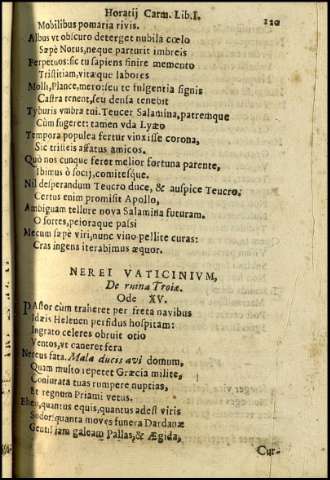 Horatij Carm. Lib. I.
Mobilibus pomaria rivis.
Albus vt obscuro deterget nubila cœlo
Sæpè Notus, neque parturit imbreis
Perpetuos: sic tu sapiens finire memento
Tristitiam, vitæque labores
Molli, Plance, mero: seu te fulgentia signis
Castra tenent, seu densa tenebit
Tyburis vmbra tui. Teucer Salamina, patremque
Cùm fugeret: tamen vda Lyæo
Tempora populea fertur vinxisse corona,
Sic tristeis affatus amicos.
Quò nos cunque feret melior fortuna parente,
Ibimus ô socij, comitesque.
Nil desperandum Teucro duce, & auspice Teucro:
Certus enim promisit Apollo,
Ambiguam tellure nova Salamina futuram.
O fortes, peioraque passi
Mecum sæpè viri, nunc vino pellite curas:
Cras ingens iterabimus æquor.
NEREI VATICINIVM,
De ruina Troiæ.
Ode XV.
PAstor cùm traheret per freta navibus
Idæis Helenen perfidus hospitam:
Ingrato celeres obruit otio
Ventos, vt caneret fera
Nereus fata. Mala ducis avi domum,
Quam multo repetet Græcia milite,
Coniurata tuas rumpere nuptias,
Et regnum Priami vetus.
Eheu, quantus equis, quantus adest viris
Sudor! quanta moves funera Dardanæ
Genti! iam galeam Pallas, & Ægida,
Cur-